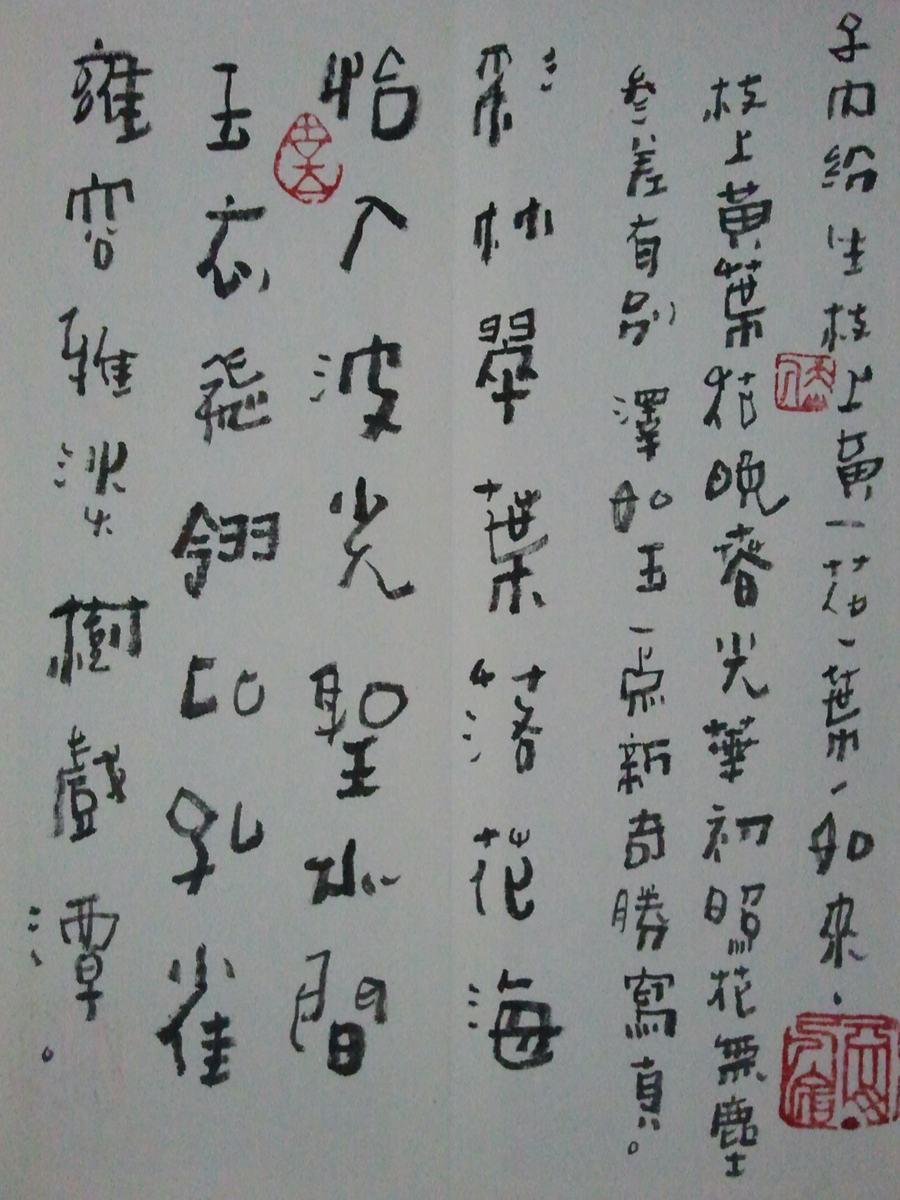 子內給生枝上黃一花一葉一如來.
枝上黃葉枯晚春光華初照花無塵
參差有別 澤如玉一原新奇勝寫真。
彩林翠葉落花海
怡入波光聖水間
玉衣飛翎比孔雀
雍容雅淡樹戲潭。